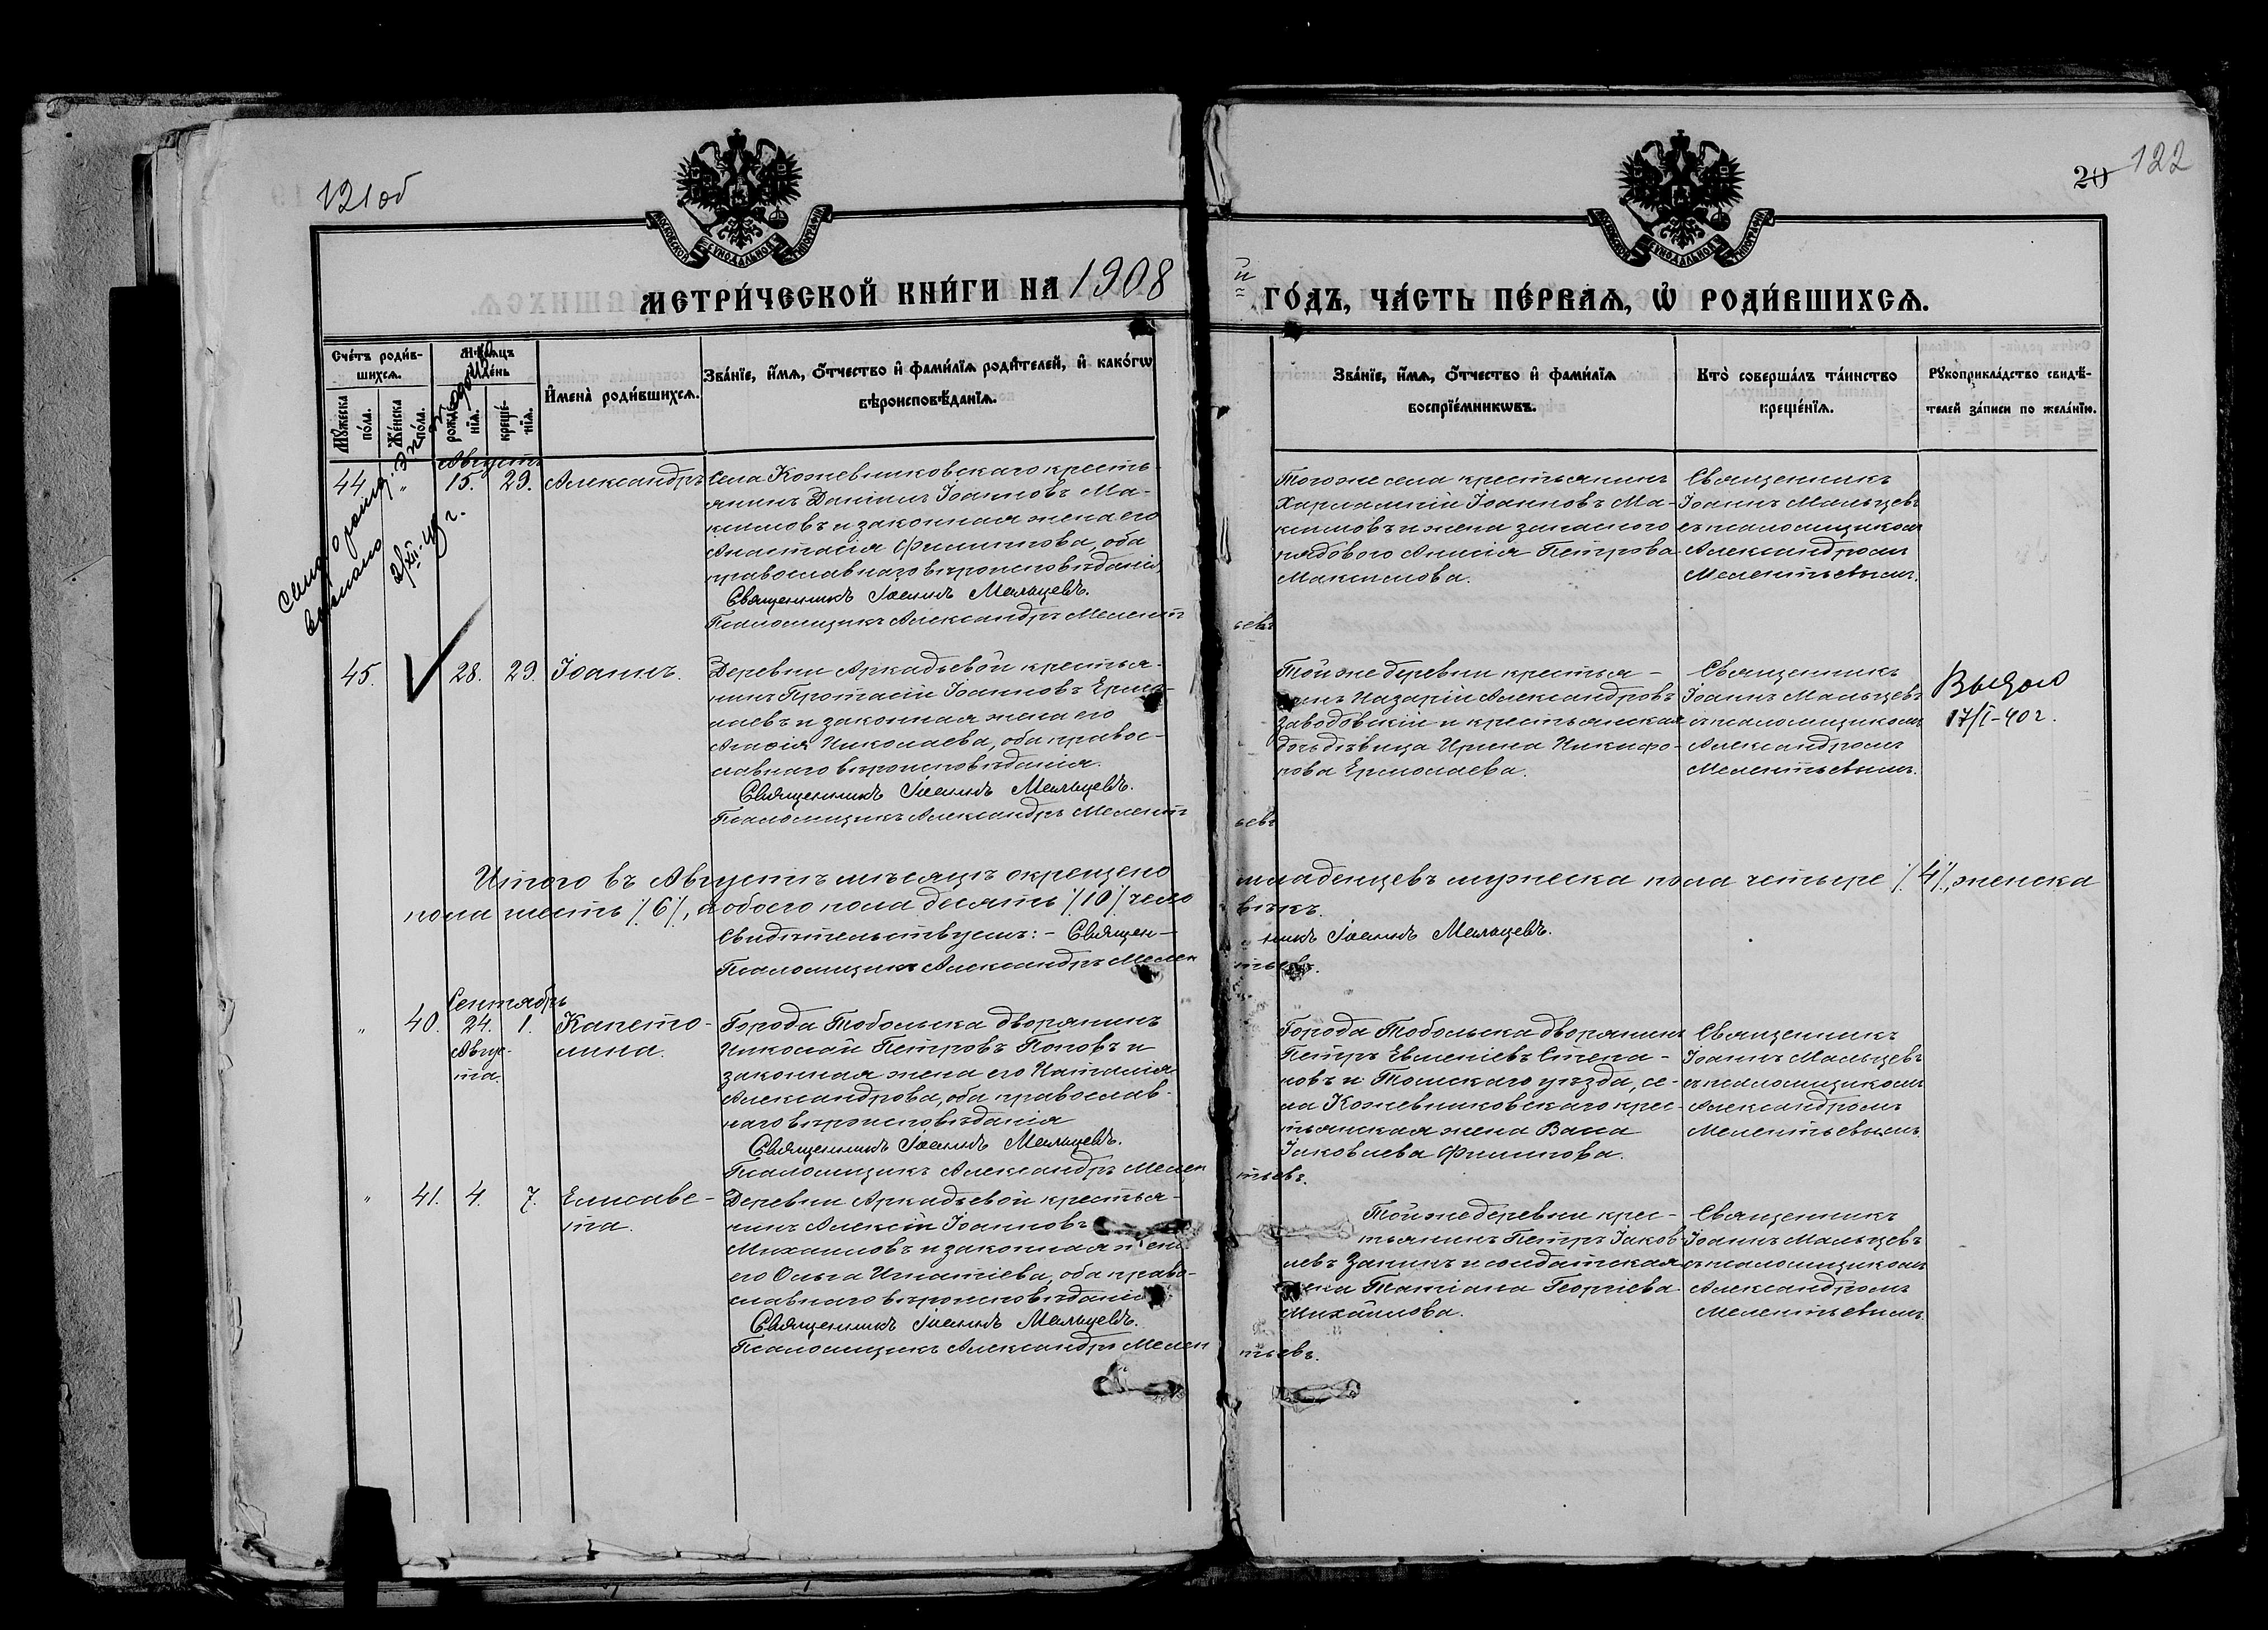 121об
20 122
МОСКОВСКОЙ СѴНОДАЛЬНОЙ ТИПОГРАФІИ
МОСКОВСКОЙ СѴНОДАЛЬНОЙ ТИПОГРАФІИ
МЕТРИ́ЧЕСКОЙ КНИ́ГИ НА 1908 й ГО́ДЪ, ЧА́СТЬ ПЕ́РВАѦ, Ѡ҆ РОДИ́ВШИХСѦ.
Сче́тъ роди́в-
шихсѧ.
Мꙋ́жеска по́ла.
Же́нска по́ла.
Мѣ́сѧцъ и҆ де́нь
рожде́-
нїѧ.
креще́-
нїѧ.
И҆мена̀ роди́вшихсѧ.
Зва́нїе, и҆́мѧ, ѻ҆́тчество и҆ фами́лїѧ роди́телей, и҆ како́гѡ
вѣроисповѣ́данїѧ.
Зва́нїе, и҆́мѧ, ѻ҆́тчество и҆ фами́лїѧ
воспрїе́мникѡвъ.
Кто̀ соверша́лъ та́инство
креще́нїѧ.
Рꙋкоприкла́дство свидѣ́-
телей за́писи по жела́нїю.
Августъ
44. " 15. 29. Александръ
Села Кожевниковскаго кресть-
янинъ Даніилъ Іоанновъ Ма-
ксимовъ и законная жена его
Анастасія Филиппова, оба
православнаго вѣроисповѣданія,
Священникъ Іоаннъ Мальцевъ.
Псаломщикъ Александръ Мелентьевъ
Того же села крестьянинъ
Харлампій Іоанновъ Ма-
ксимовъ и жена запаснаго
рядового Анисія Петрова
Максимова.
Священникъ
Іоаннъ Мальцевъ
съ псаломщикомъ
Александромъ
Мелентьевымъ.
45. 28. 29. Іоаннъ.
Деревни Аркадьевой крестья-
нинъ Протасій Іоанновъ Ермо-
лаевъ и законная жена его
Агафія Николаева, оба правос-
лавнаго вѣроисповѣданія.
Священникъ Іоаннъ Мальцевъ.
Псаломщикъ Александръ Мелентьевъ
Той же деревни крестья-
нинъ Назарій Александровъ
Заводовскій и крестьянская
дочь дѣвица Ирина Никифо-
рова Ермолаева.
Священникъ
Іоаннъ Мальцевъ
съ псаломщикомъ
Александромъ
Мелентьевымъ.
17/I-40г.
Итого въ Августѣ мѣсяцѣ окрещено младенцевъ мужеска пола четыре /4/, женска
пола шесть /6/, а обоего пола десять /10/ человѣкъ.
Свидѣтельствуемъ: – Священникъ Іоаннъ Мальцевъ.
Псаломщикъ Александръ Мелентьевъ.
Сентябрь
" 40. 24. 1. Капето-
Авгус-
та.
лина.
Города Тобольска дворянинъ
Николай Петровъ Поповъ и
законная жена его Наталія
Александрова, оба православ-
наго вѣроисповѣданія
Священникъ Іоаннъ Мальцевъ.
Псаломщикъ Александръ Мелентьевъ.
Города Тобольска дворянинъ
Петръ Евменіевъ Степа-
новъ и Томскаго уѣзда, се-
ла Кожевниковскаго крес-
тьянская жена Васса
Іаковлева Филиппова.
Священникъ
Іоаннъ Мальцевъ
съ псаломщикомъ
Александромъ
Мелентьевымъ.
" 41. 4. 7. Елисаве-
та.
Деревни Аркадьевой крестья-
нинъ Алексій Іоанновъ
Михаиловъ и законная жена
его Ольга Игнатіева, оба право-
славнаго вѣроисповѣданія
Священникъ Іоаннъ Мальцевъ.
Псаломщикъ Александръ Мелентьевъ.
Той же деревни крес-
тьянинъ Петръ Іаков-
левъ Занинъ и солдатская
жена Татіана Георгіева
Михаилова.
Священникъ
Іоаннъ Мальцевъ
съ псаломщикомъ
Александромъ
Мелентьевымъ.